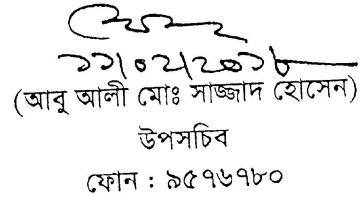 ১১/০২/২০১৮
(আবু আলী মোঃ সাজ্জাদ হোসেন)
উপসচিব
ফোন : ৯৫৭৬৭৮০